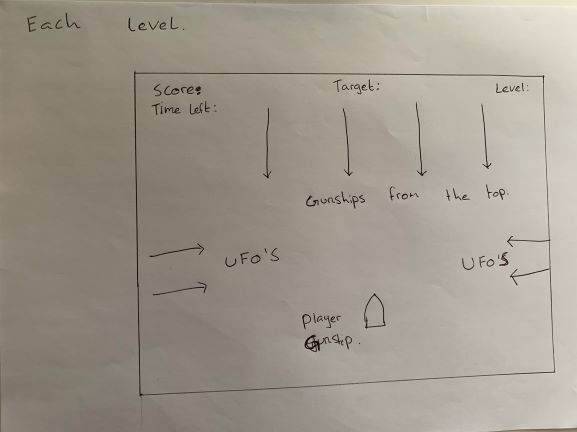 Each Level.
Score: Target: Level:
Time left:
Gunships from the top.
UFO'S UFO'S
player
Gunship.